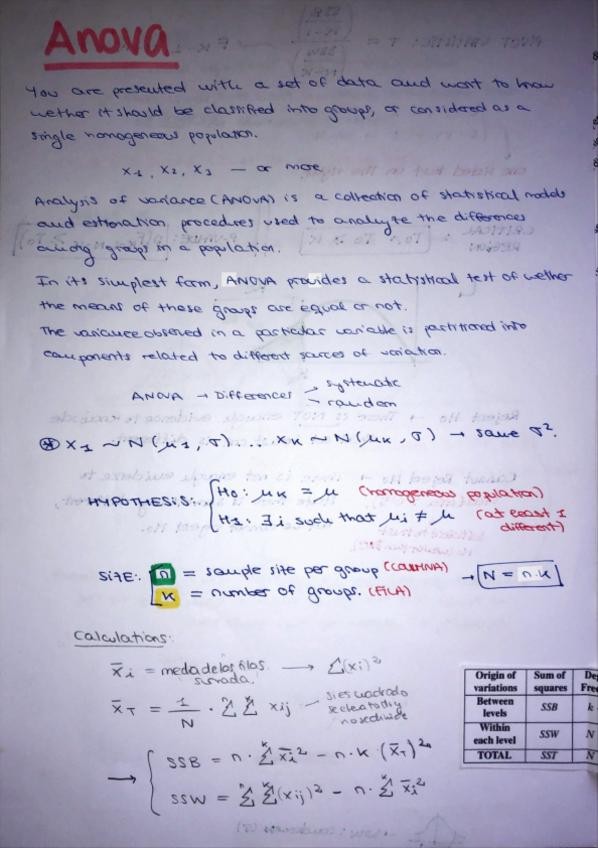 Anova
You are presented with a set of data and want to know
wether it should be classified into groups, or considered as a
single homogeneous population.
X1, X2, X3 — or more
Analysis of variance (ANOVA) is a collection of statistical models
and estimation procedures used to analyze the differences
among groups in a population.
In its simplest form, ANOVA provides a statystical test of wether
the means of these groups are equal or not.
The variance observed in a particular variable is partitioned into
components related to different sources of variation.
ANOVA → Differences → systematic
→ random
⊛ X1 ~ N(μ1, σ) ... XK ~ N(μK, σ) → same σ².
HYPOTHESIS: { H0: μK = μ (homogeneous population)
H1: ∃ i such that μi ≠ μ (at least 1
different)
SIZE: n = sample size per group (COLUMNA) → N = n·k
k = number of groups. (FILA)
Calculations:
x̄i = media de las filas → Σ(xi)²
sumada.
x̄T = 1/N · Σ Σ xij — si es cuadrado
no se divide
→ { SSB = n · Σ x̄i² − n·k (x̄T)²
SSW = Σ Σ (xij)² − n · Σ x̄i²
Origin of variations Sum of squares
Between levels SSB k
Within each level SSW N
TOTAL SST N